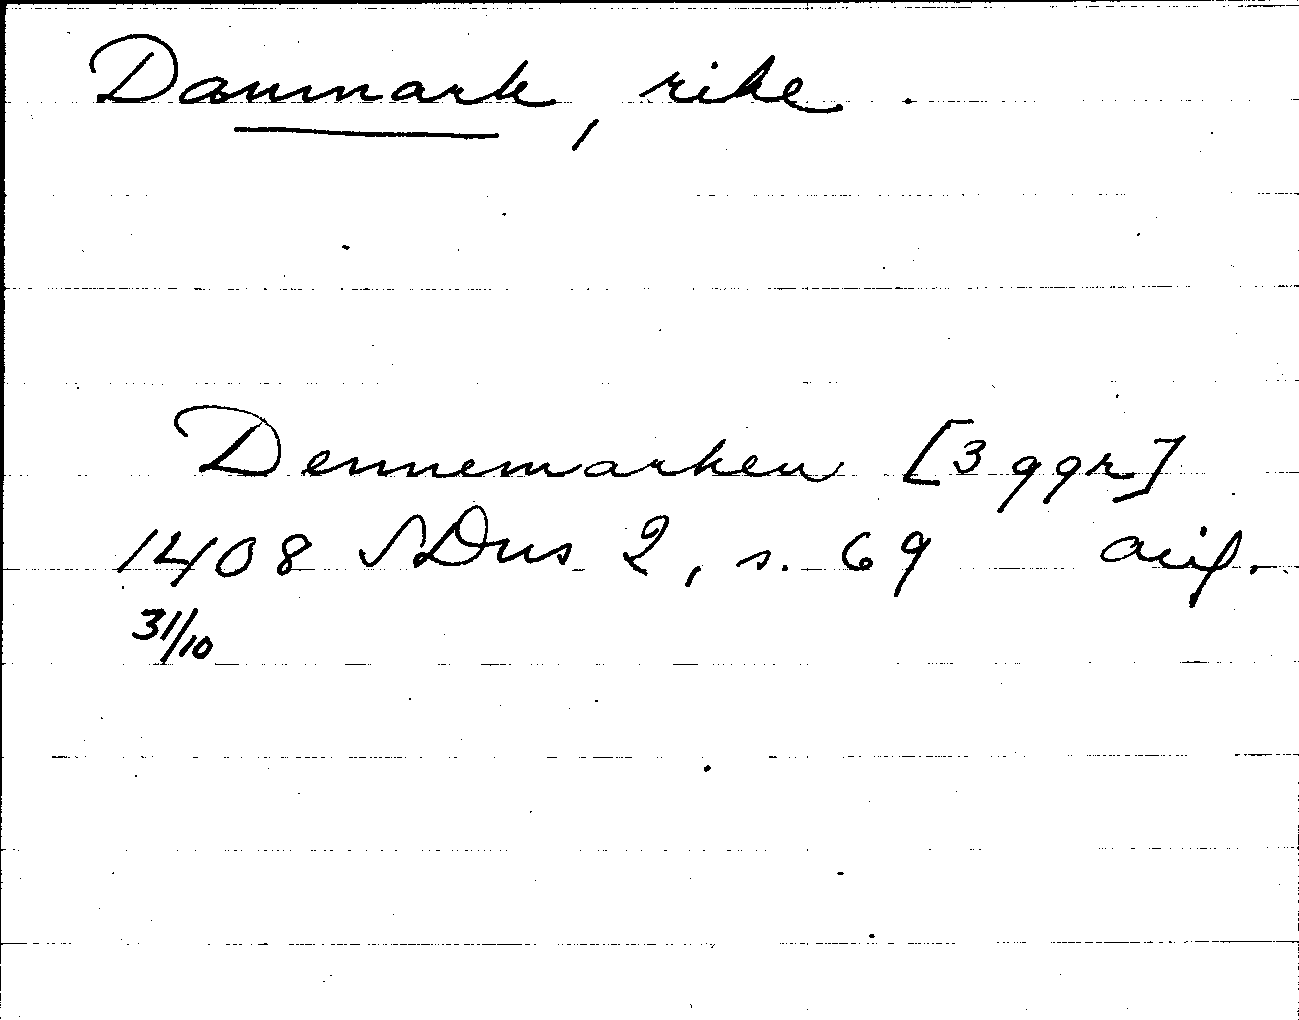 Danmark, rike.
Dennemarken [3 ggr]
1408 SDns 2, s. 69 avif.
31/10